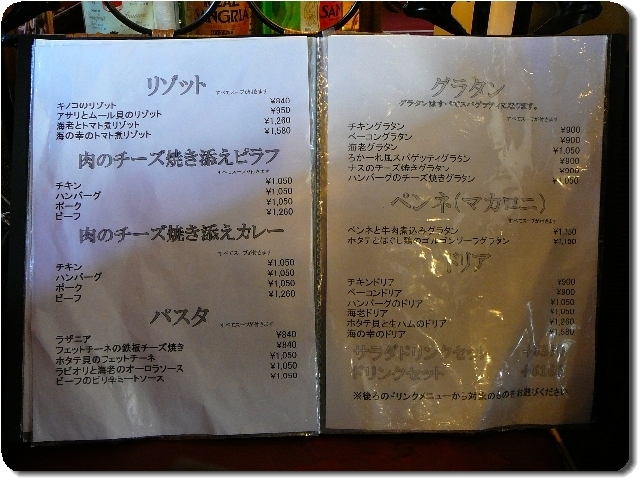 SANGRIA
SAN
リゾット
すべてスープが付きます
キノコのリゾット ¥840
アサリとムール貝のリゾット ¥950
海老とトマト煮リゾット ¥1,260
海の幸のトマト煮リゾット ¥1,580
肉のチーズ焼き添えピラフ
すべてスープが付きます
チキン ¥1,050
ハンバーグ ¥1,050
ポーク ¥1,050
ビーフ ¥1,260
肉のチーズ焼き添えカレー
すべてスープが付きます
チキン ¥1,050
ハンバーグ ¥1,050
ポーク ¥1,050
ビーフ ¥1,260
パスタ
すべてスープが付きます
ラザニア ¥840
フェットチーネの鉄板チーズ焼き ¥840
ホタテ貝のフェットチーネ ¥1,050
ラビオリと海老のオーロラソース ¥1,050
ビーフのピリ辛ミートソース ¥1,050
グラタン
グラタンはすべてスパゲッティになります。
すべてスープが付きます
チキングラタン ¥900
ベーコングラタン ¥900
海老グラタン ¥1,050
ろかーれ風スパゲッティグラタン ¥900
ナスのチーズ焼きグラタン ¥900
ハンバーグのチーズ焼きグラタン ¥1,050
ペンネ(マカロニ)
すべてスープが付きます
ペンネと牛肉煮込みグラタン ¥1,150
ホタテとほぐし鶏のゴルゴンゾーラグラタン ¥1,150
ドリア
チキンドリア ¥900
ベーコンドリア ¥900
ハンバーグのドリア ¥1,050
海老ドリア ¥1,050
ホタテ貝と生ハムのドリア ¥1,260
海の幸のドリア ¥1,580
サラダドリンクセット
ドリンクセット
※後ろのドリンクメニューから対象のものをお選びください